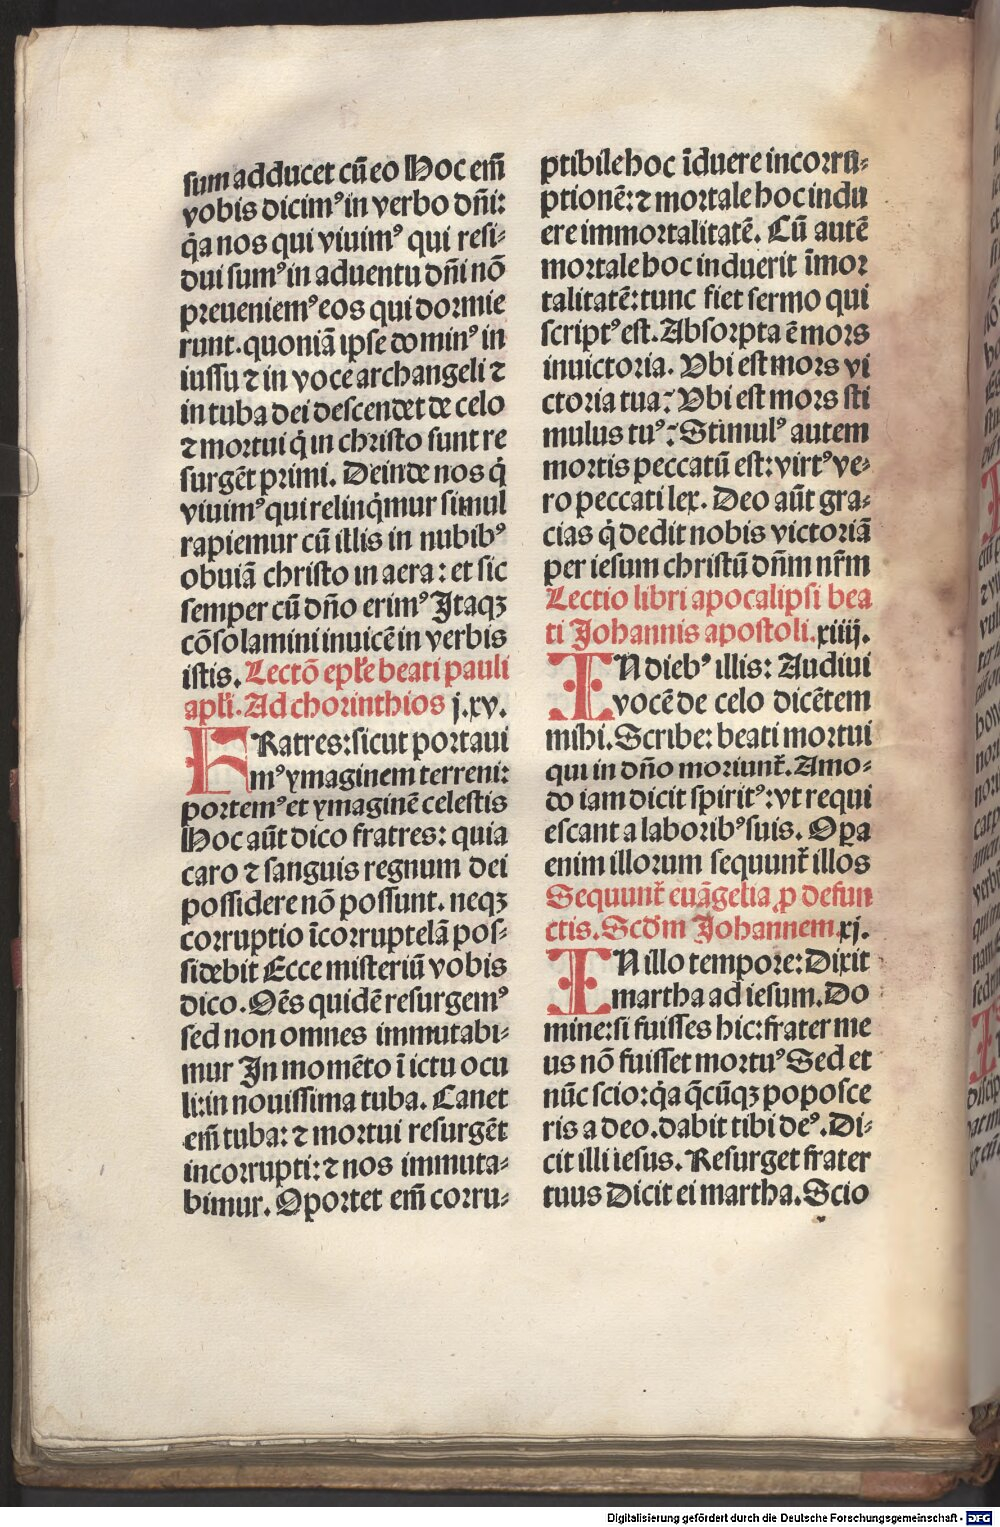 sum adducet cū eo Hoc em̄
vobis dicimꝰ in verbo dn̄i:
q̇a nos qui viuimꝰ qui resi⸗
dui sumꝰ in aduentu dn̄i nō
preueniemꝰ eos qui dormie
runt. quoniā ipse dominꝰ in
iussu ⁊ in voce archangeli ⁊
in tuba dei descendet de celo
⁊ mortui q̇ in christo sunt re
surgēt primi. Deinde nos q̇
viuimꝰ qui relinq̇mur simul
rapiemur cū illis in nubibꝰ
obuiā christo in aera: et sic
semper cū dn̄o erimꝰ Itaqꝫ
cōsolamini inuicē in verbis
istis. Lectō epl̄e beati pauli
apl̄i. Ad chorinthios j.xv.
FRatres: sicut portaui
mꝰ ymaginem terreni:
portemꝰ et ymaginē celestis
Hoc aūt dico fratres: quia
caro ⁊ sanguis regnum dei
possidere nō possunt. neqꝫ
corruptio īcorruptelā pos⸗
sidebit Ecce misteriū vobis
dico. Oēs quidē resurgemꝰ
sed non omnes immutabi⸗
mur In momēto ī ictu ocu
li: in nouissima tuba. Canet
em̄ tuba: ⁊ mortui resurgēt
incorrupti: ⁊ nos immuta⸗
bimur. Oportet em̄ corru⸗
ptibile hoc īduere incorru⸗
ptionē: ⁊ mortale hoc indu
ere immortalitatē. Cū autē
mortale hoc induerit īmor
talitatē: tunc fiet sermo qui
scriptꝰ est. Absorpta ē mors
in victoria. Vbi est mors vi
ctoria tua? Vbi est mors sti
mulus tuꝰ? Stimulꝰ autem
mortis peccatū est: virtꝰ ve⸗
ro peccati lex. Deo aūt gra⸗
cias q̇ dedit nobis victoriā
per iesum christū dn̄m nr̄m
Lectio libri apocalipsi bea
ti Johannis apostoli. xiiij.
IN diebꝰ illis: Audiui
vocē de celo dicētem
mihi. Scribe: beati mortui
qui in dn̄o moriunt̄. Amo⸗
do iam dicit spiritꝰ: vt requi
escant a laboribꝰ suis. Oꝑa
enim illorum sequunt̄ illos
Sequunt̄ euāgelia ꝓ defun
ctis. Scd̄m Johannem. xj.
IN illo tempore: Dixit
martha ad iesum. Do
mine: si fuisses hic: frater me
us nō fuisset mortuꝰ Sed et
nūc scio: q̇a q̄cūqꝫ poposce
ris a deo. dabit tibi deꝰ. Di⸗
cit illi iesus. Resurget frater
tuus Dicit ei martha. Scio
Digitalisierung gefördert durch die Deutsche Forschungsgemeinschaft - DFG